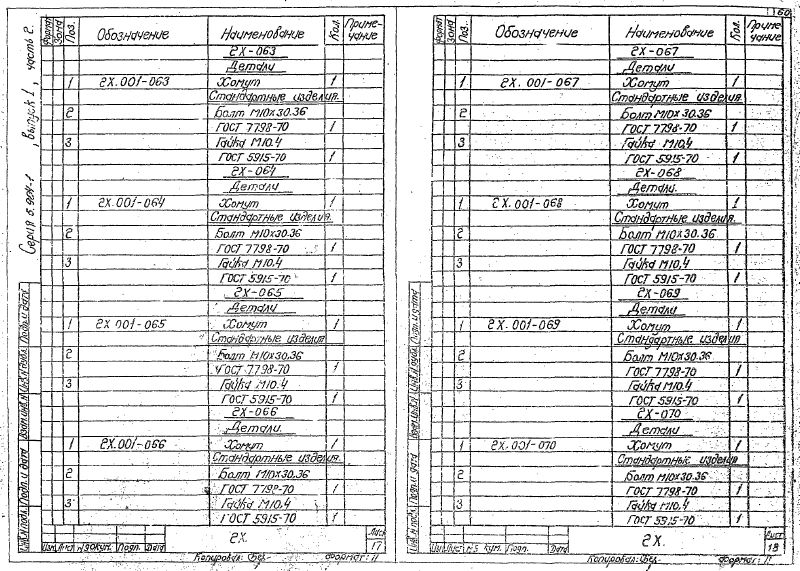 160
Серия 5.904-1, Выпуск 1, часть 2.
Формат Зона Поз. Обозначение Наименование Кол. Приме-чание
2Х-063
Детали
1 2Х.001-063 Хомут 1
Стандартные изделия.
2 Болт М10х30.36
ГОСТ 7798-70 1
3 Гайка М10.4
ГОСТ 5915-70 1
2Х-064
Детали
1 2Х.001-064 Хомут 1
Стандартные изделия.
2 Болт М10х30.36
ГОСТ 7798-70 1
3 Гайка М10.4
ГОСТ 5915-70 1
2Х-065
Детали
1 2Х 001-065 Хомут 1
Стандартные изделия
2 Болт М10х30.36
ГОСТ 7798-70 1
3 Гайка М10.4
ГОСТ 5915-70 1
2Х-066
Детали.
1 2Х.001-066 Хомут 1
Стандартные изделия.
2 Болт М10х30.36
ГОСТ 7798-70 1
3 Гайка М10.4
ГОСТ 5915-70 1
Изм. Лист № докум. Подп. Дата
2Х.
Лист 17
Копировал: Формат: 11
Инв.№ подл. Подп. и дата Взам.инв.№ Инв.№ дубл. Подп. и дата
Формат Зона Поз. Обозначение Наименование Кол. Приме-чание
2Х-067
Детали
1 2Х.001-067 Хомут 1
Стандартные изделия.
2 Болт М10х30.36
ГОСТ 7798-70 1
3 Гайка М10.4
ГОСТ 5915-70 1
2Х-068
Детали.
1 2Х.001-068 Хомут 1
Стандартные изделия.
2 Болт М10х30.36
ГОСТ 7798-70 1
3 Гайка М10.4
ГОСТ 5915-70 1
2Х-069
Детали
1 2Х.001-069 Хомут 1
Стандартные изделия.
2 Болт М10х30.36
ГОСТ 7798-70 1
3 Гайка М10.4
ГОСТ 5915-70 1
2Х-070
Детали.
1 2Х.001-070 Хомут 1
Стандартные изделия
2 Болт М10х30.36
ГОСТ 7798-70 1
3 Гайка М10.4
ГОСТ 5915-70 1
Изм. Лист № докум. Подп. Дата
2Х.
Лист 18
Копировал: Формат: 11
Инв.№ подл. Подп. и дата Взам.инв.№ Инв.№ дубл. Подп. и дата